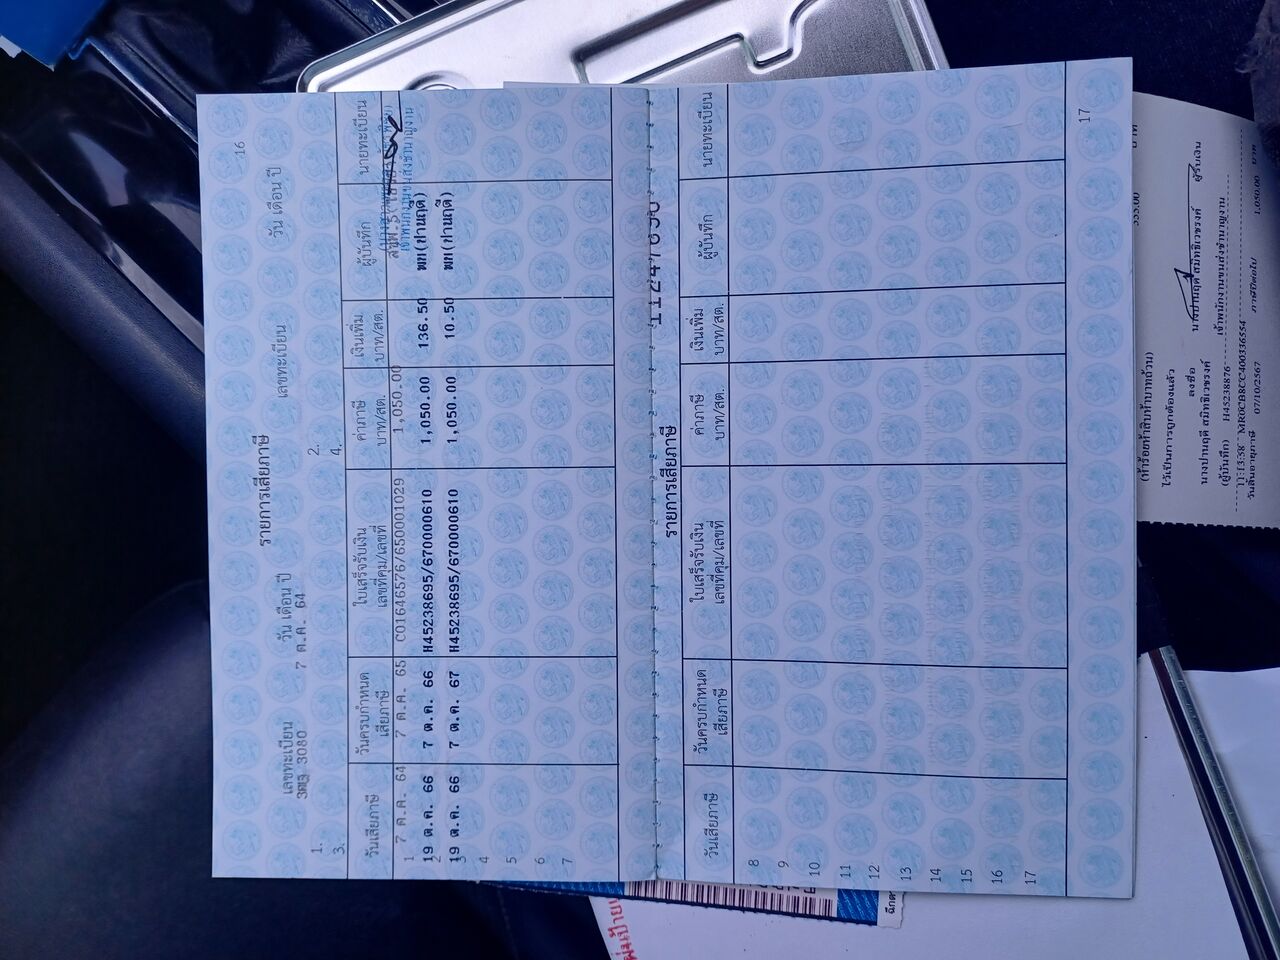 16
รายการเสียภาษี
เลขทะเบียน วัน เดือน ปี เลขทะเบียน วัน เดือน ปี
1. 3080 7 ต.ค. 64 2.
3. 4.
วันเสียภาษี วันครบกำหนดเสียภาษี ใบเสร็จรับเงิน เลขที่คุม/เลขที่ ค่าภาษี บาท/สต. เงินเพิ่ม บาท/สต. ผู้บันทึก นายทะเบียน
1 7 ต.ค. 64 7 ต.ค. 65 C01646576/650001029 1,050.00
2 19 ต.ค. 66 7 ต.ค. 66 H45238695/670000610 1,050.00 136.50 พก(ปานฤดี)
3 19 ต.ค. 66 7 ต.ค. 67 H45238695/670000610 1,050.00 10.50 พก(ปานฤดี)
4
5
6
7
เจ้าพนักงานขนส่งชำนาญงาน
รายการเสียภาษี
วันเสียภาษี วันครบกำหนดเสียภาษี ใบเสร็จรับเงิน เลขที่คุม/เลขที่ ค่าภาษี บาท/สต. เงินเพิ่ม บาท/สต. ผู้บันทึก นายทะเบียน
8
9
10
11
12
13
14
15
16
17
17
555.00 บาท
(ห้าร้อยห้าสิบห้าบาทถ้วน)
ไว้เป็นการถูกต้องแล้ว
ลงชื่อ นางปานฤดี สมิทธิเวชรงค์ ผู้รับเงิน
นางปานฤดี สมิทธิเวชรงค์ เจ้าพนักงานขนส่งชำนาญงาน
(ผู้บันทึก) H45238876
11:13:58 - MR0CB8CC400336554
วันสิ้นอายุภาษี 07/10/2567 ภาษีปีต่อไป 1,050.00 บาท